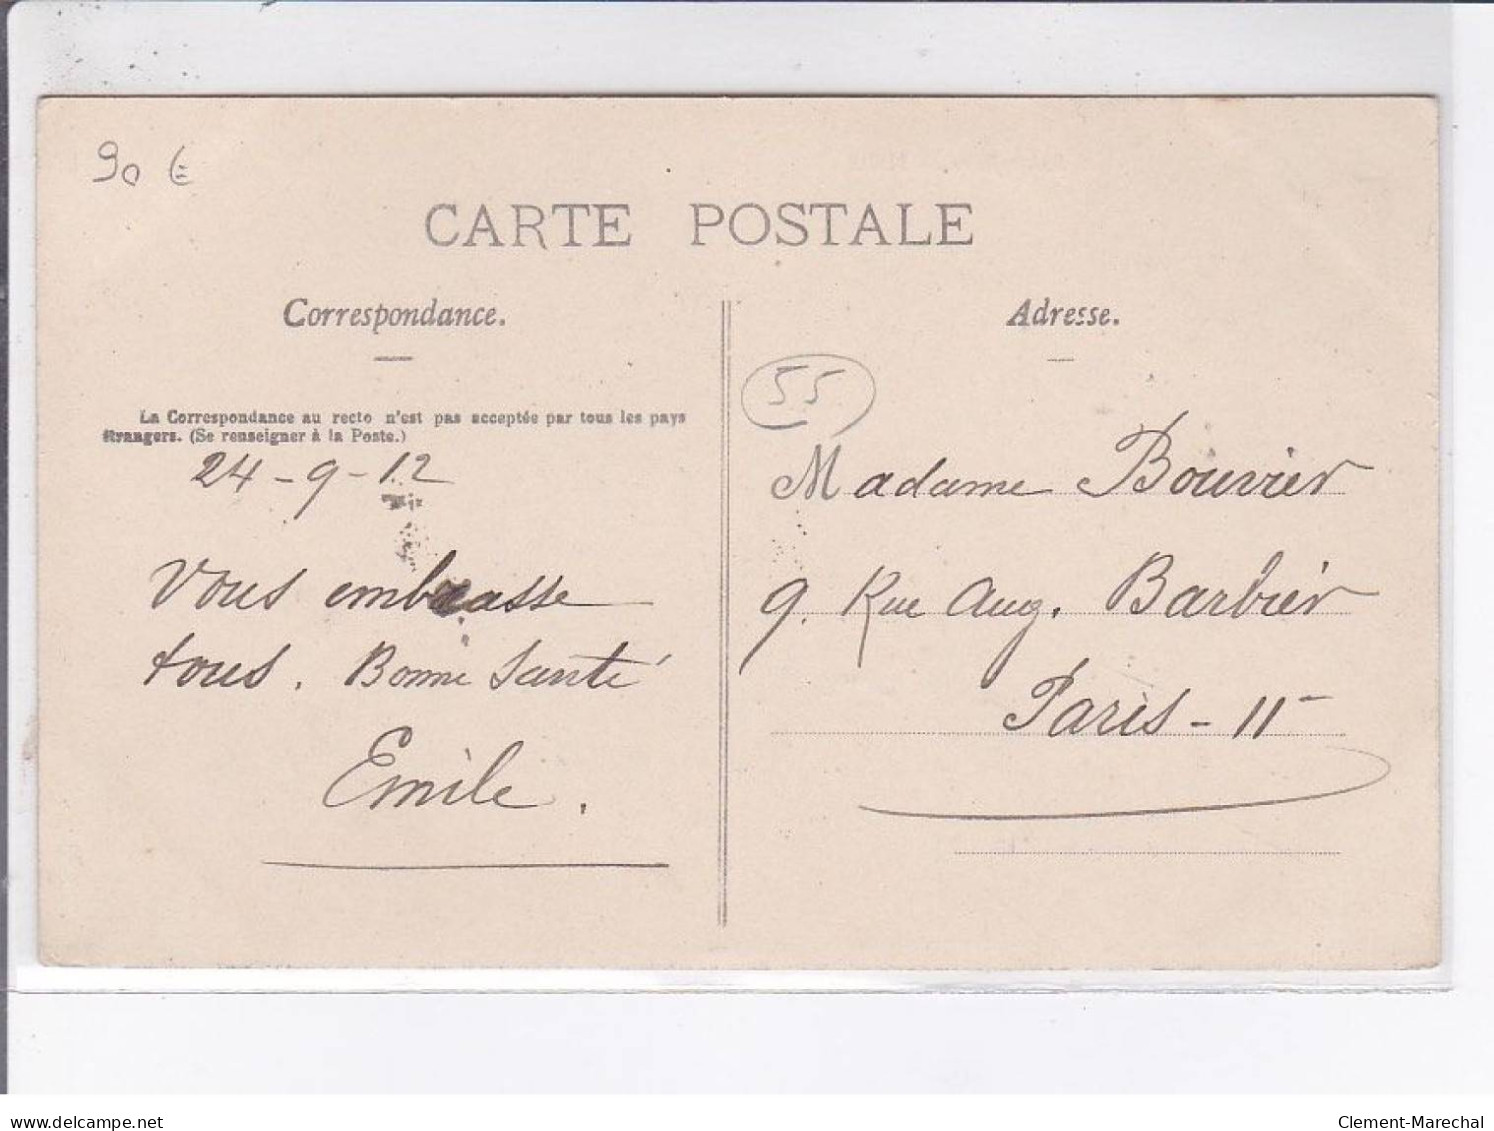 90 €
CARTE POSTALE
Correspondance.
La Correspondance au recto n'est pas acceptée par tous les pays
étrangers. (Se renseigner à la Poste.)
24-9-12
Vous embrasse
tous. Bonne Santé
Emile.
Adresse.
55
Madame Bouvier
9. Rue Aug. Barbier
Paris - 11
www.delcampe.net
Clement-Marechal